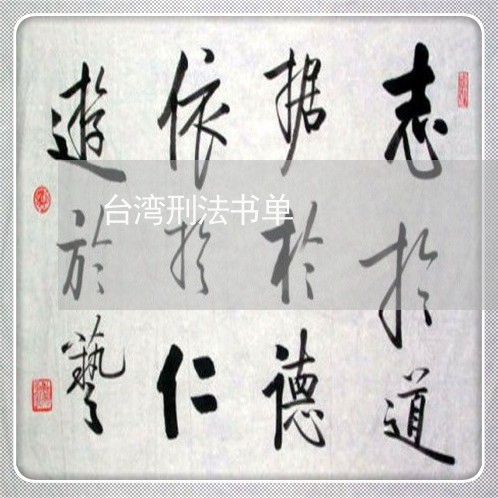 志於道
据於德
依於仁
遊於藝
台湾刑法书单